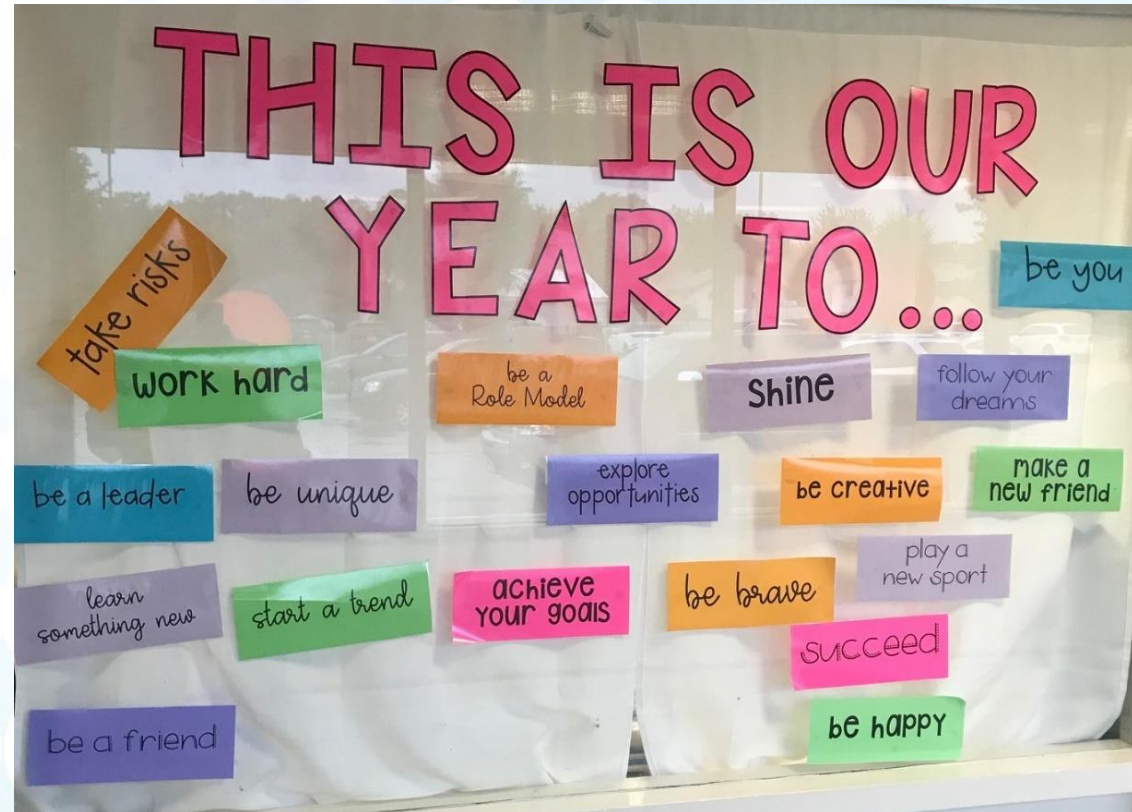 THIS IS OUR
YEAR TO...
be you
take risks
work hard
be a
Role Model
Shine
follow your
dreams
be a leader
be unique
explore
opportunities
be creative
make a
new friend
learn
something new
start a trend
achieve
your goals
be brave
play a
new sport
succeed
be a friend
be happy